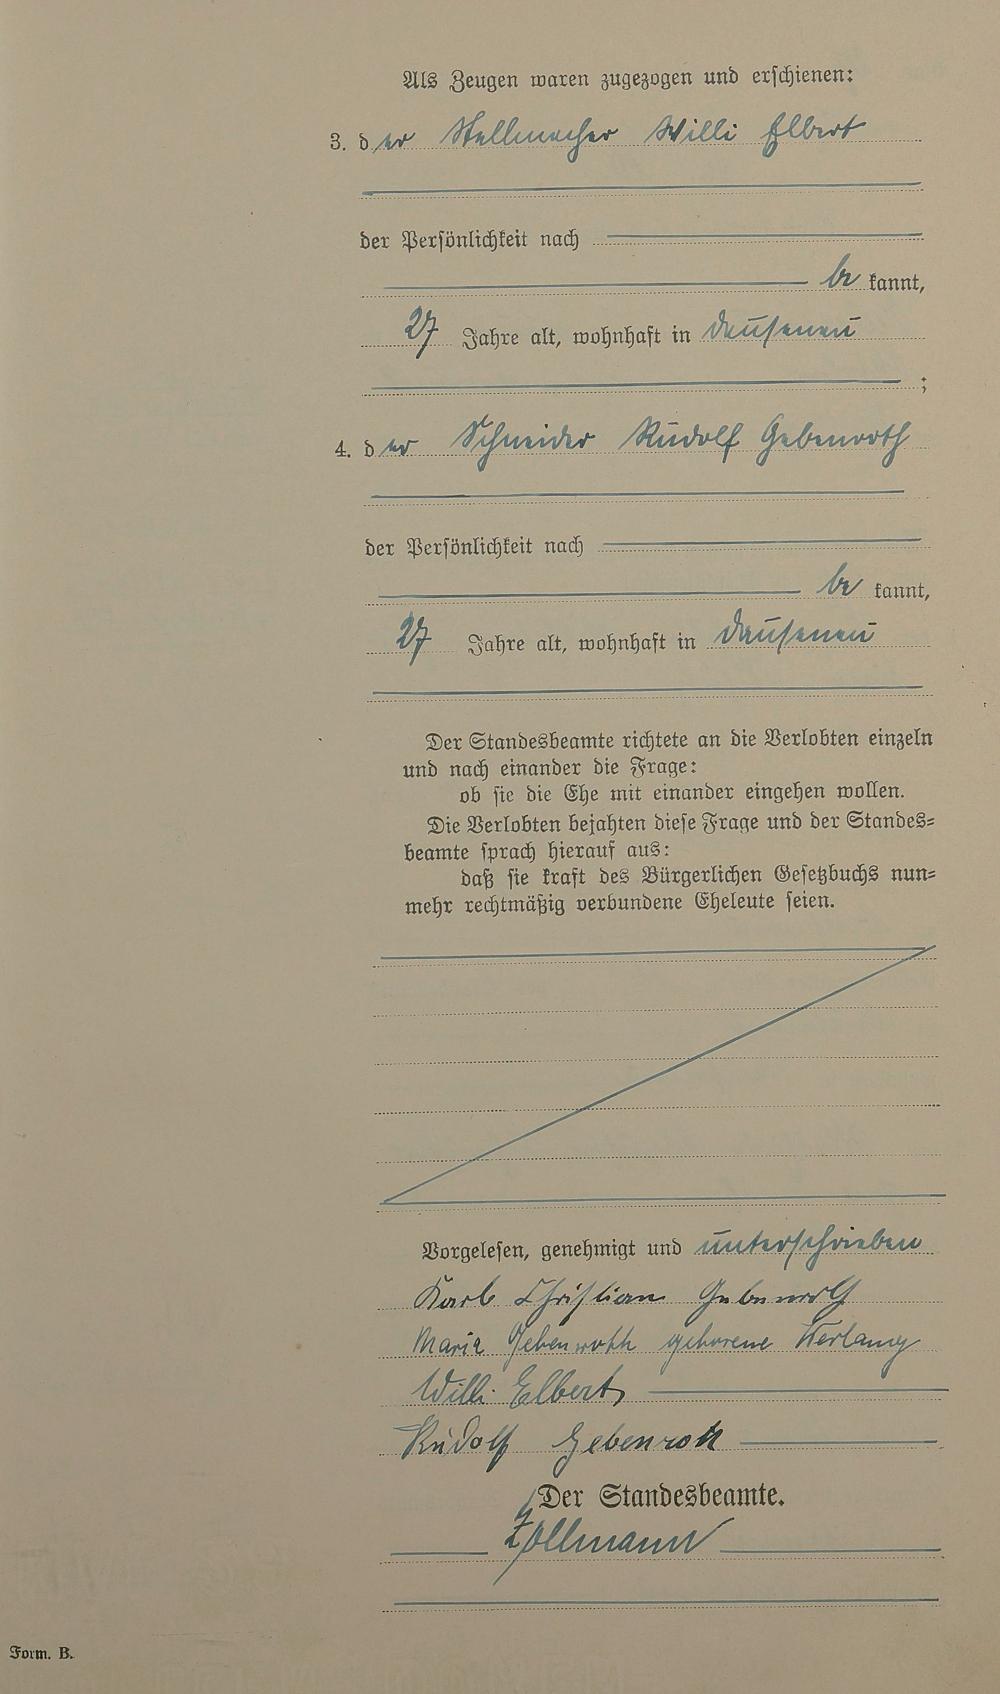 Als Zeugen waren zugezogen und erschienen:
3. der Stellmacher Willi Elbert
der Persönlichkeit nach
be kannt,
27 Jahre alt, wohnhaft in Dausenau
;
4. der Schneider Rudolf Gebenroth
der Persönlichkeit nach
be kannt,
27 Jahre alt, wohnhaft in Dausenau
Der Standesbeamte richtete an die Verlobten einzeln
und nach einander die Frage:
ob sie die Ehe mit einander eingehen wollen.
Die Verlobten bejahten diese Frage und der Standes=
beamte sprach hierauf aus:
daß sie kraft des Bürgerlichen Gesetzbuchs nun=
mehr rechtmäßig verbundene Eheleute seien.
Vorgelesen, genehmigt und unterschrieben
Karl Christian Gebenroth
Maria Gebenroth geborene
Willi Elbert
Rudolf Gebenroth
Der Standesbeamte.
Zollmann
Form. B.